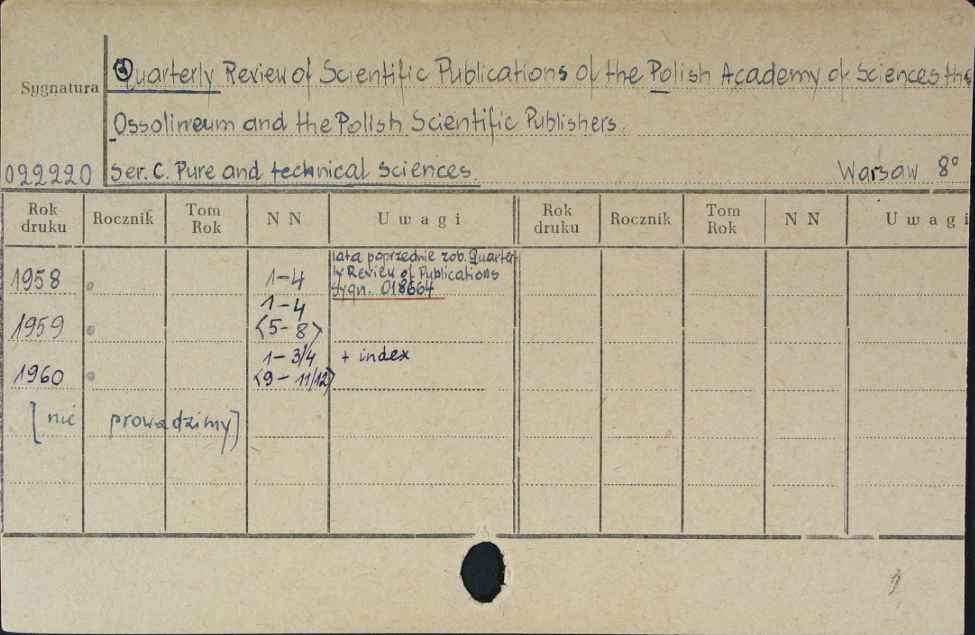 Quarterly Review of Scientific Publications of the Polish Academy of Sciences the
Sygnatura
Ossolineum and the Polish Scientific Publishers.
022220 Ser. C. Pure and technical sciences. Warsaw 8°
Rok druku Rocznik Tom Rok NN Uwagi Rok druku Rocznik Tom Rok NN Uwagi
lata poprzednie zob. Quarter-
1958 1-4 ly Review of Publications
sygn. 018664
1-4
1959 <5-8>
1-3/4 + index
1960 <9-11/12>
[nie prowadzimy]